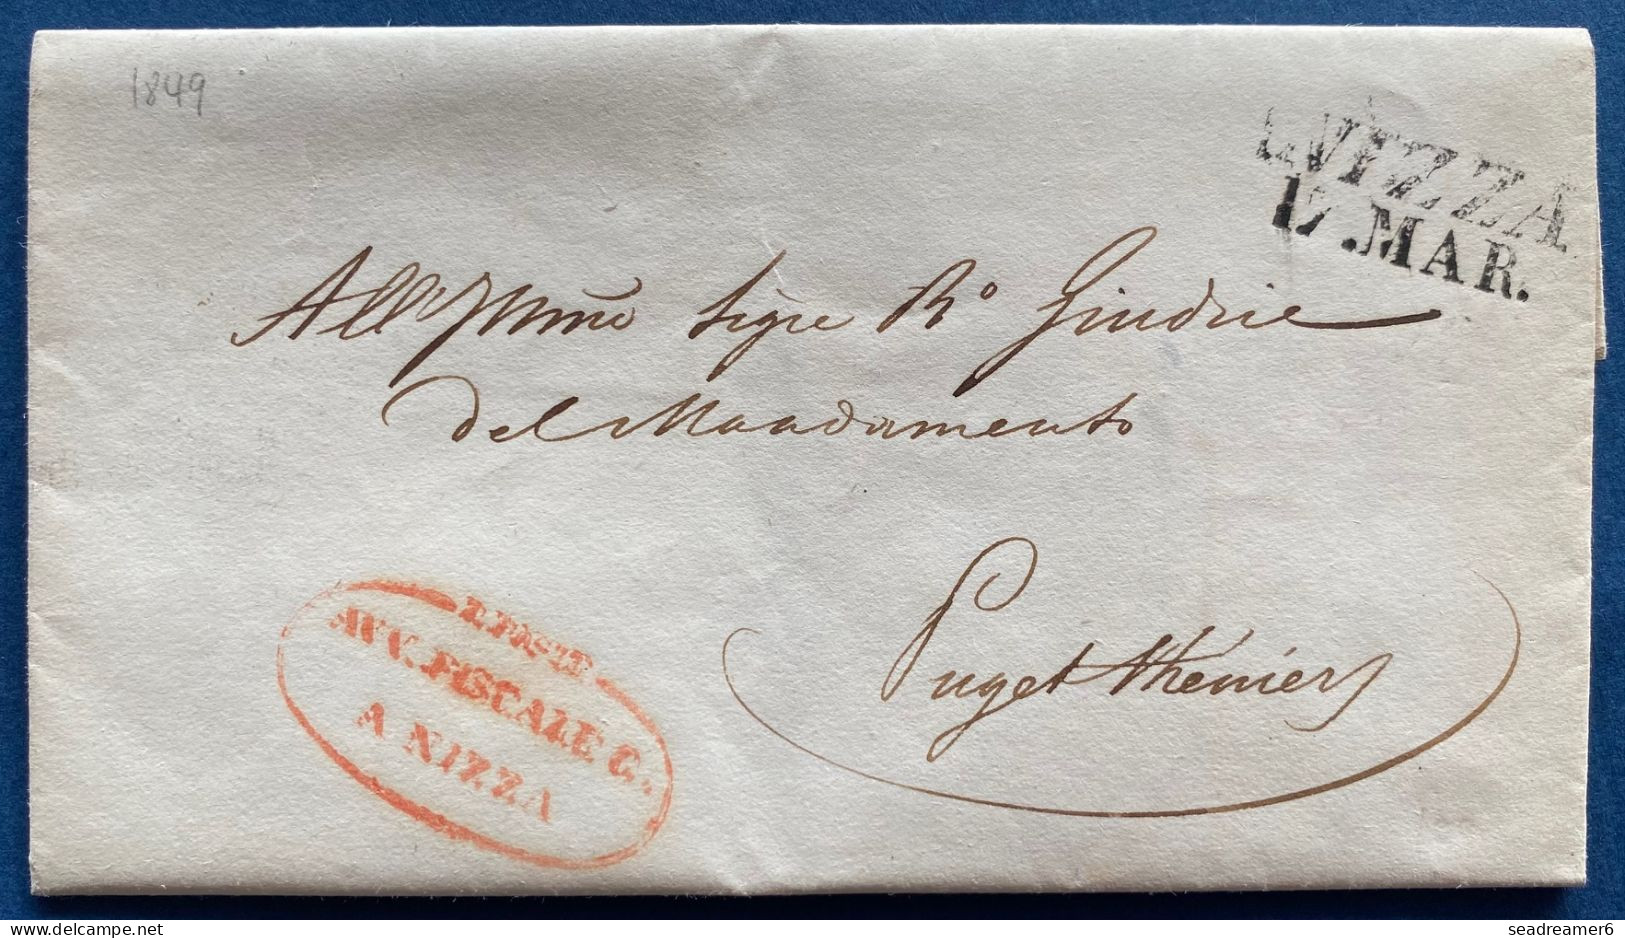 1849
NIZZA
12.MAR.
All' Illmo Sigre Ro Giudice
del Mandamento
Puget Théniers
R. POSTE
AVV. FISCALE G.
A NIZZA
delcampe.net
seadreamer6